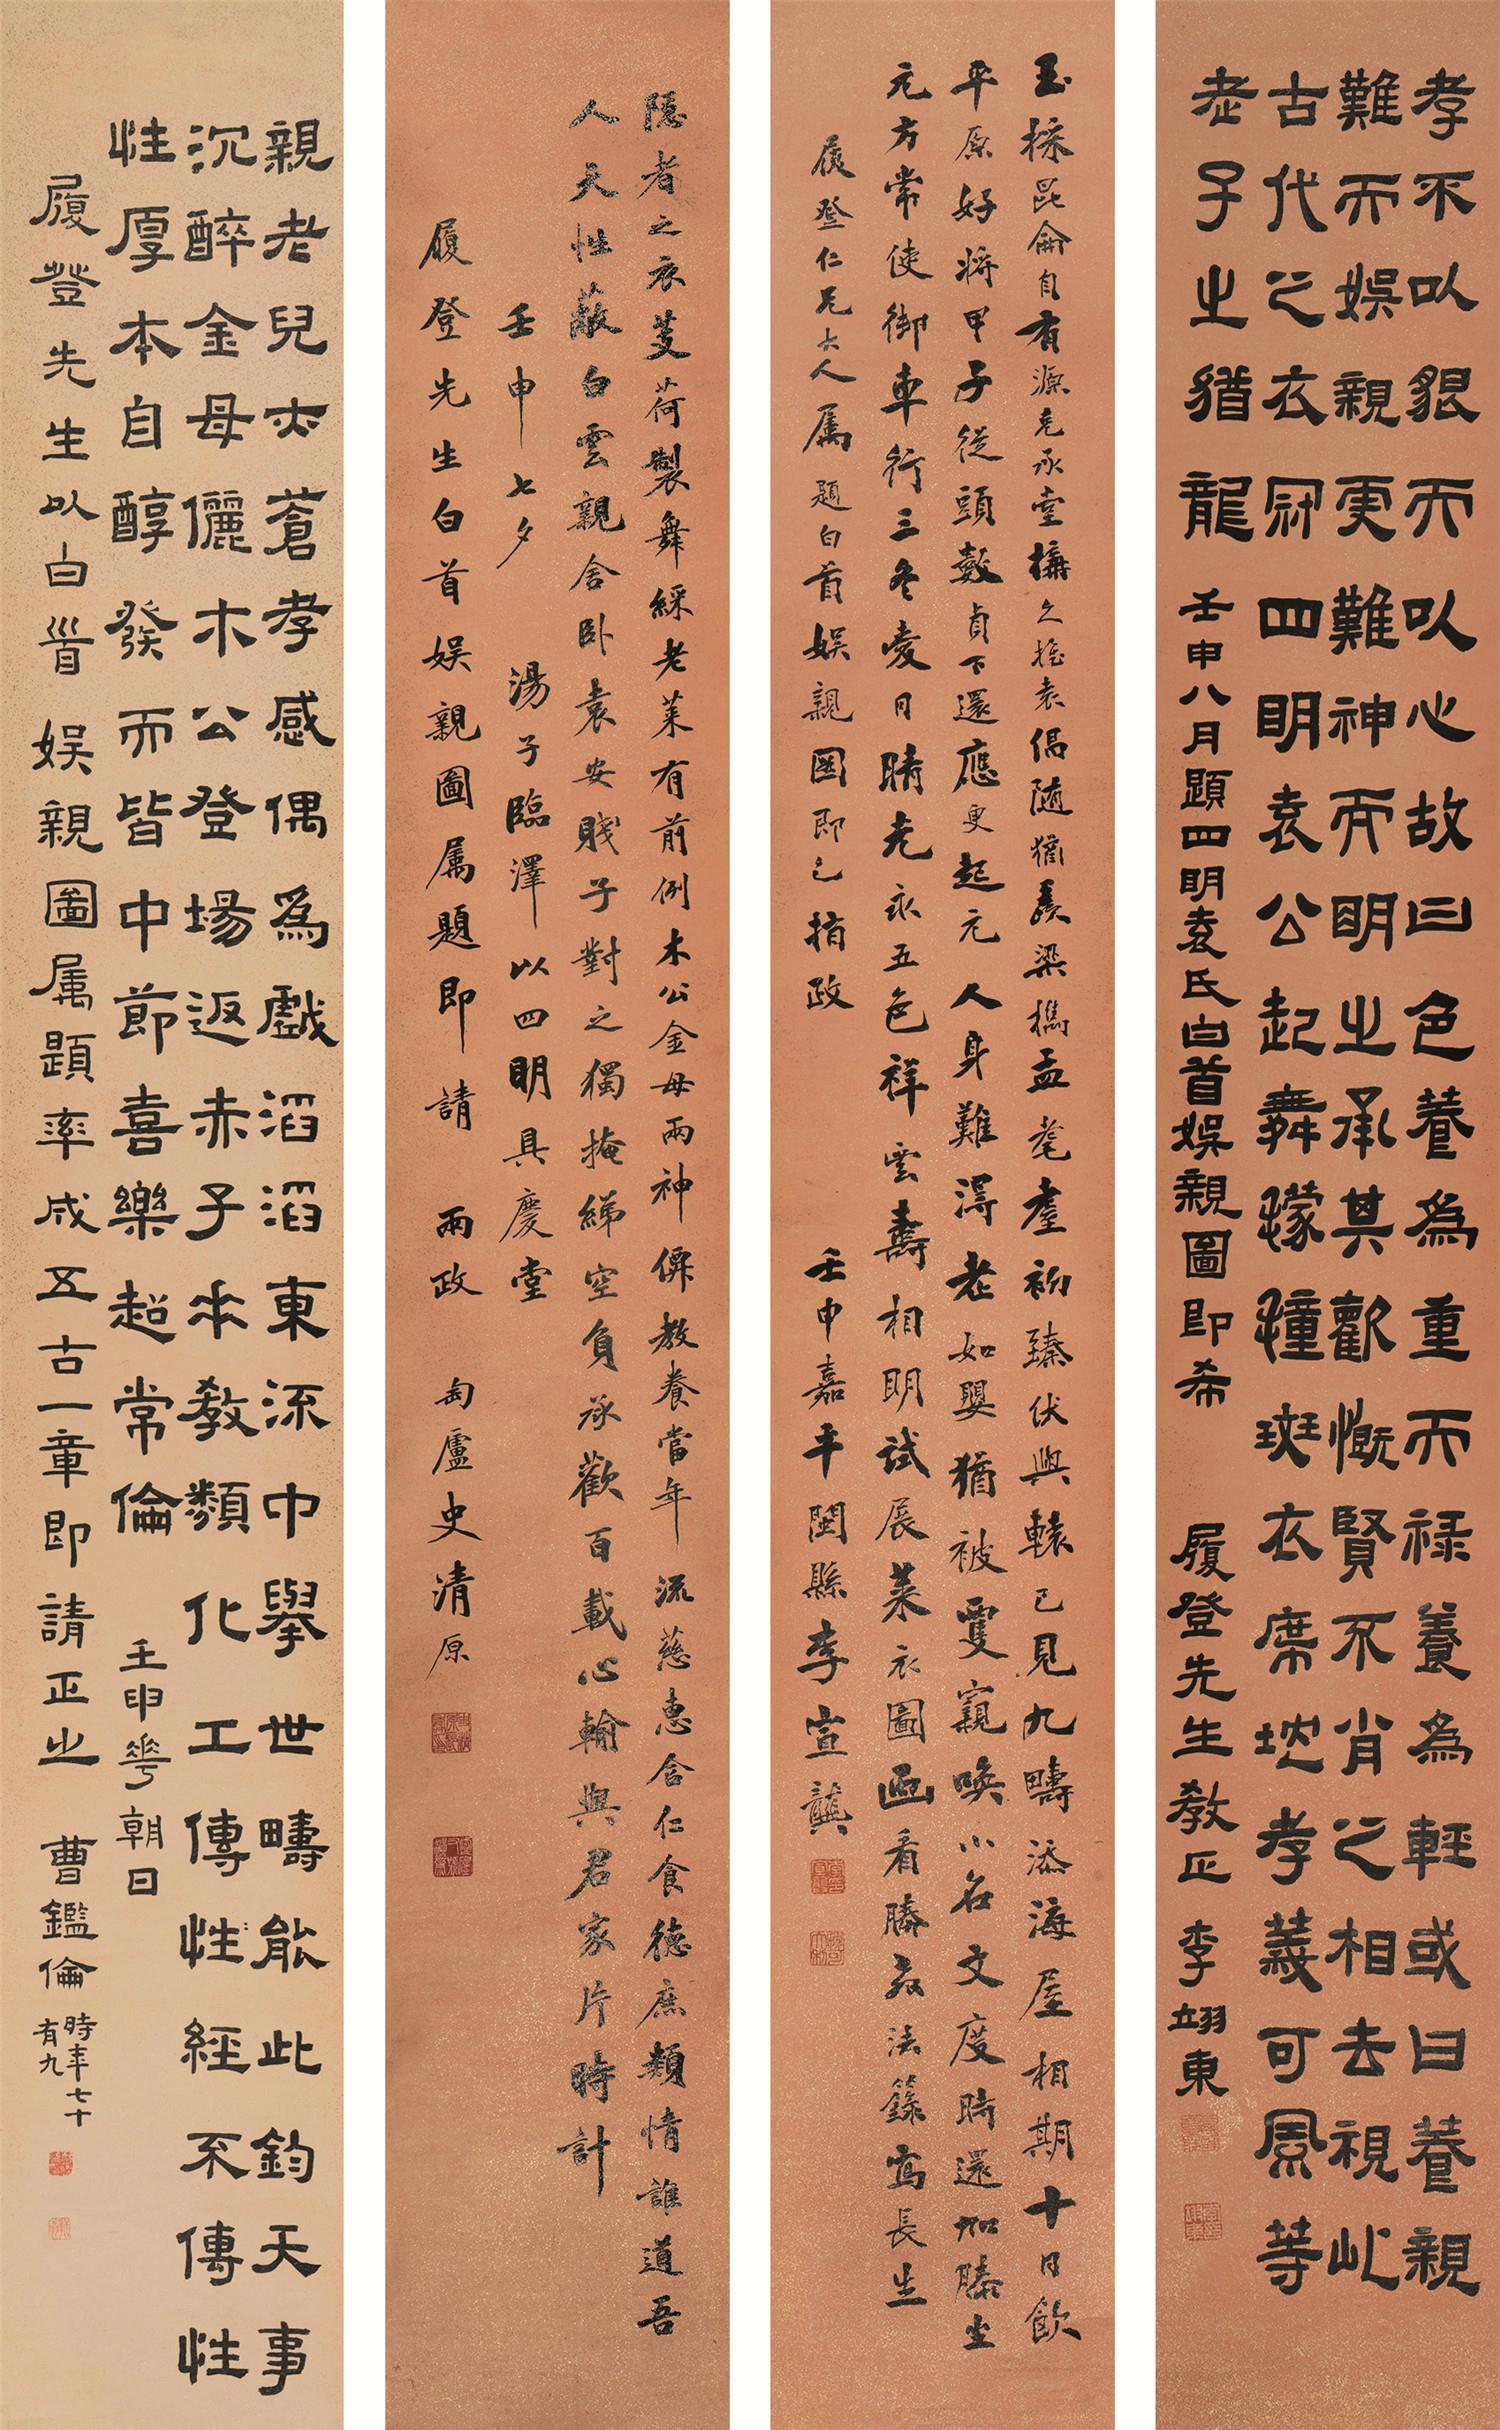 孝不以貌而以心故曰色養為重而祿養為輕或曰養親
難而娛親更難神而明之承其歡慨賢不肖之相去視此
古代之衣冠四明袁公起舞躟躟斑衣席地孝義可風等
老子之猶龍
壬申八月題四明袁氏白首娛親圖即希
履登先生教正 李翊東
玉採昆侖自有源克承堂構久推袁偈隨猶羨梁攜孟耄耋初臻伏與轅已見九疇添海屋相期十日飲
平原好將甲子從頭數貞下還應更起元人身難得老如嬰猶被雙親喚小名文度時還加膝坐
元方常使御車行三冬愛日晴光永五色祥雲壽相明試展萊衣圖畫看勝教法籙寫長生
履登仁兄大人屬題白首娛親圖即乞指政
壬申嘉平閩縣李宣龔
隱者之衣芰荷製舞綵老萊有前例木公金母兩神僊教養當年流慈惠含仁食德庶類情誰道吾
人天性蔽白雲親舍臥袁安賤子對之獨掩綈空負承歡百載心輸與君家片時計
壬申七夕 湯子臨澤以四明具慶堂
履登先生白首娛親圖屬題即請 兩政 匋廬史清原
親老兒亦蒼孝感偶為戲滔滔東流中舉世疇能此鈞天事
沉醉金母儷木公登場返赤子本教類化工傳性經不傳性
性厚本自醇發而皆中節喜樂超常倫
壬申華朝日
履登先生以白首娛親圖屬題率成五古一章即請正之 曹鑑倫
時年七十
有九